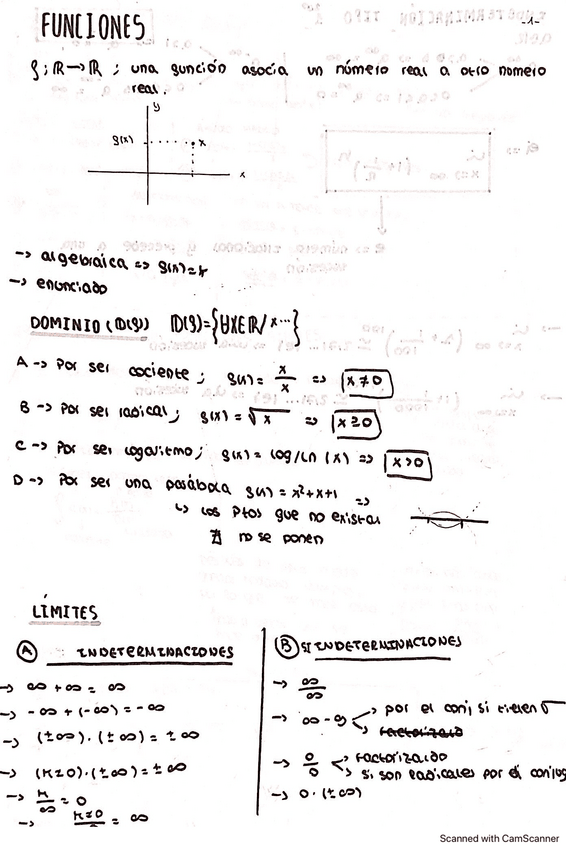 FUNCIONES
-1-
f: ℝ → ℝ ; una función asocia un número real a otro numero
real.
y
f(x)
x
x
-> algebráica => f(x)=k
-> enunciado
DOMINIO (D(f)) D(f)={∀x∈ℝ/ x...}
A -> Por ser cociente; f(x) = x/x => x≠0
B -> Por ser radical; f(x) = √x => x≥0
C -> Por ser logaritmo; f(x) = log/Ln (x) => x>0
D -> Por ser una parábola f(x) = x²+x+1 =>
↳ Los Ptos que no existan
∄ no se ponen
LÍMITES
A INDETERMINACIONES
-> ∞ + ∞ = ∞
-> -∞ + (-∞) = -∞
-> (±∞) · (±∞) = ±∞
-> (k≠0) · (±∞) = ±∞
-> k/∞ = 0
-> k≠0/ = ∞
B SI INDETERMINACIONES
-> ∞/∞
-> ∞-∞ por el conj si tienen √
factorizado
-> 0/0 factorizado
si son radicales por el conjug
-> 0 · (±∞)
Scanned with CamScanner